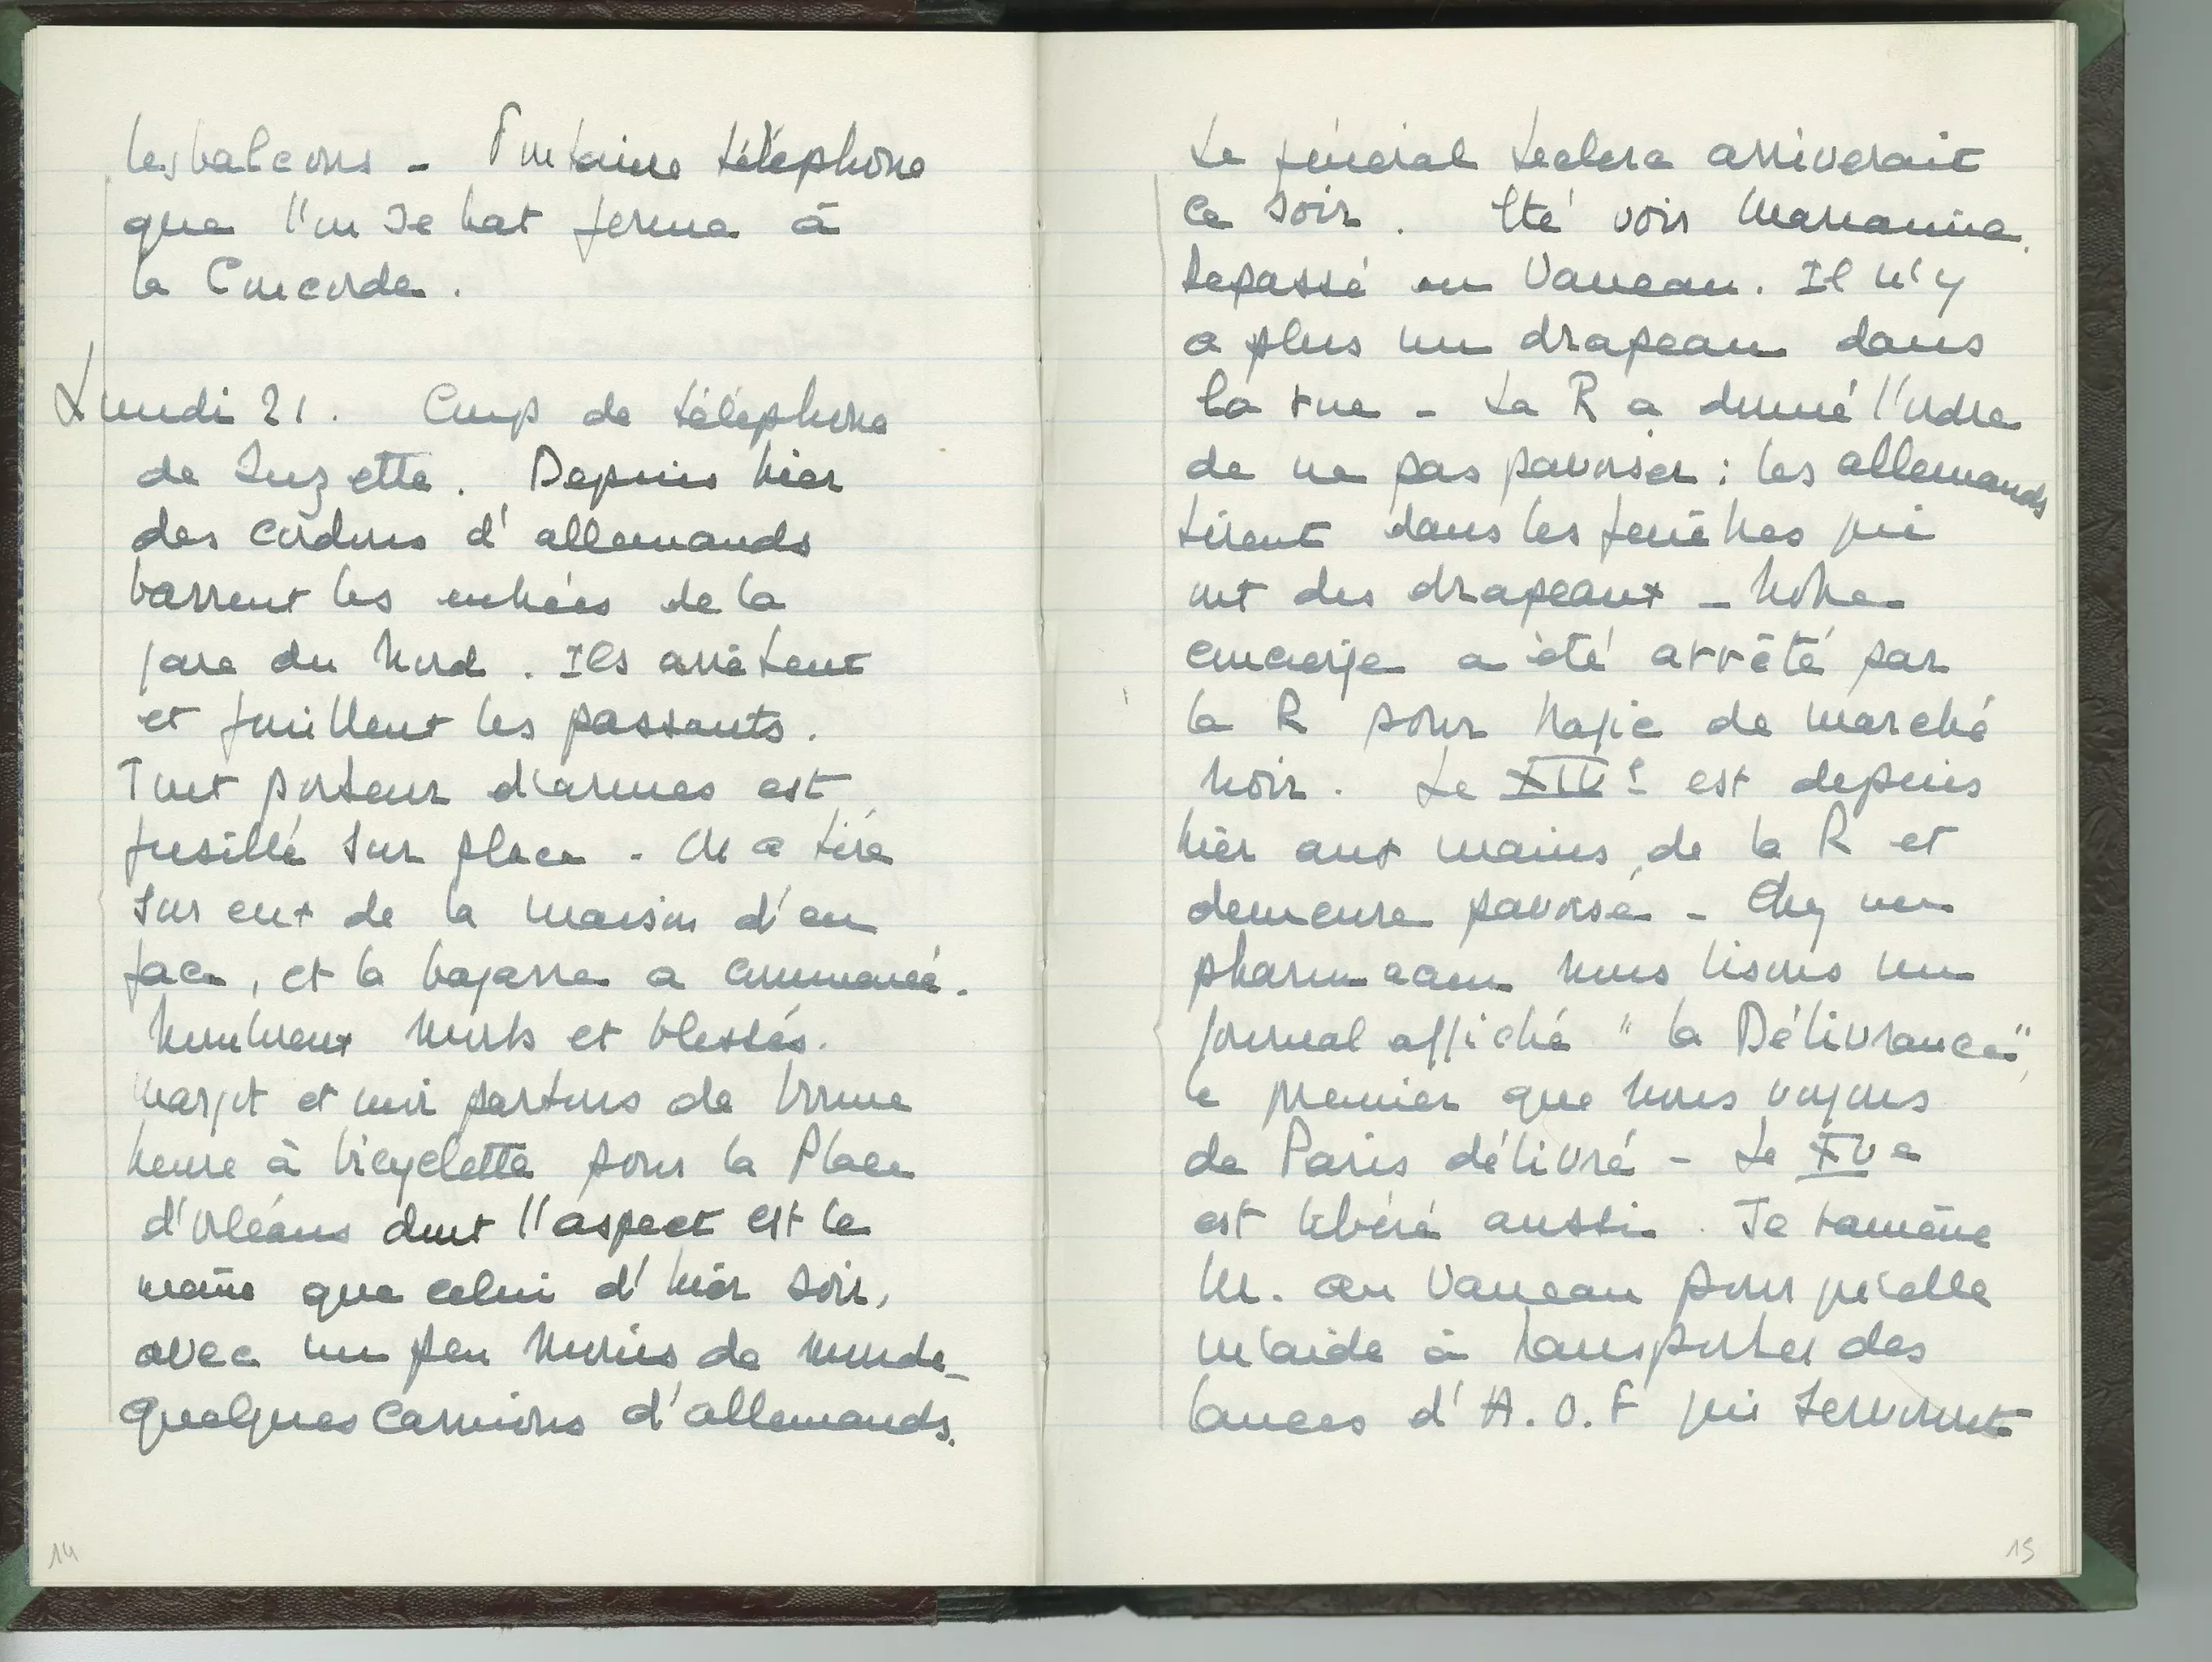 les balcons - Fontaine téléphone
que l'on se bat ferme à
la Concorde.
Lundi 21. Coup de téléphone
de Suzette. Depuis hier
des cordons d'allemands
barrent les entrées de la
gare du Nord. Ils arrêtent
et fouillent les passants.
Tout porteur d'armes est
fusillé sur place - On a tiré
sur eux de la maison d'en
face, et la bagarre a commencé.
Nombreux morts et blessés.
Margot et moi partons de bonne
heure à bicyclette pour la Place
d'Orléans dont l'aspect est le
même que celui d'hier soir,
avec un peu moins de monde -
quelques camions d'allemands.
14
Le général Leclerc arriverait
ce soir. Eté voir
Repassé au Vaneau. Il n'y
a plus un drapeau dans
la rue - La R a donné l'ordre
de ne pas pavoiser : les allemands
tirent dans les fenêtres qui
ont des drapeaux - Notre
concierge a été arrêté par
la R pour trafic de marché
noir. Le XIVe est depuis
hier aux mains de la R et
demeure pavoisé - Chez un
pharmacien nous lisons un
journal affiché "la Délivrance",
le premier que nous voyons
de Paris délivré - Le XVe
est libéré aussi. Je ramène
M. au Vaneau pour qu'elle
m'aide à transporter des
lances d'A.O.F qui serviront
15